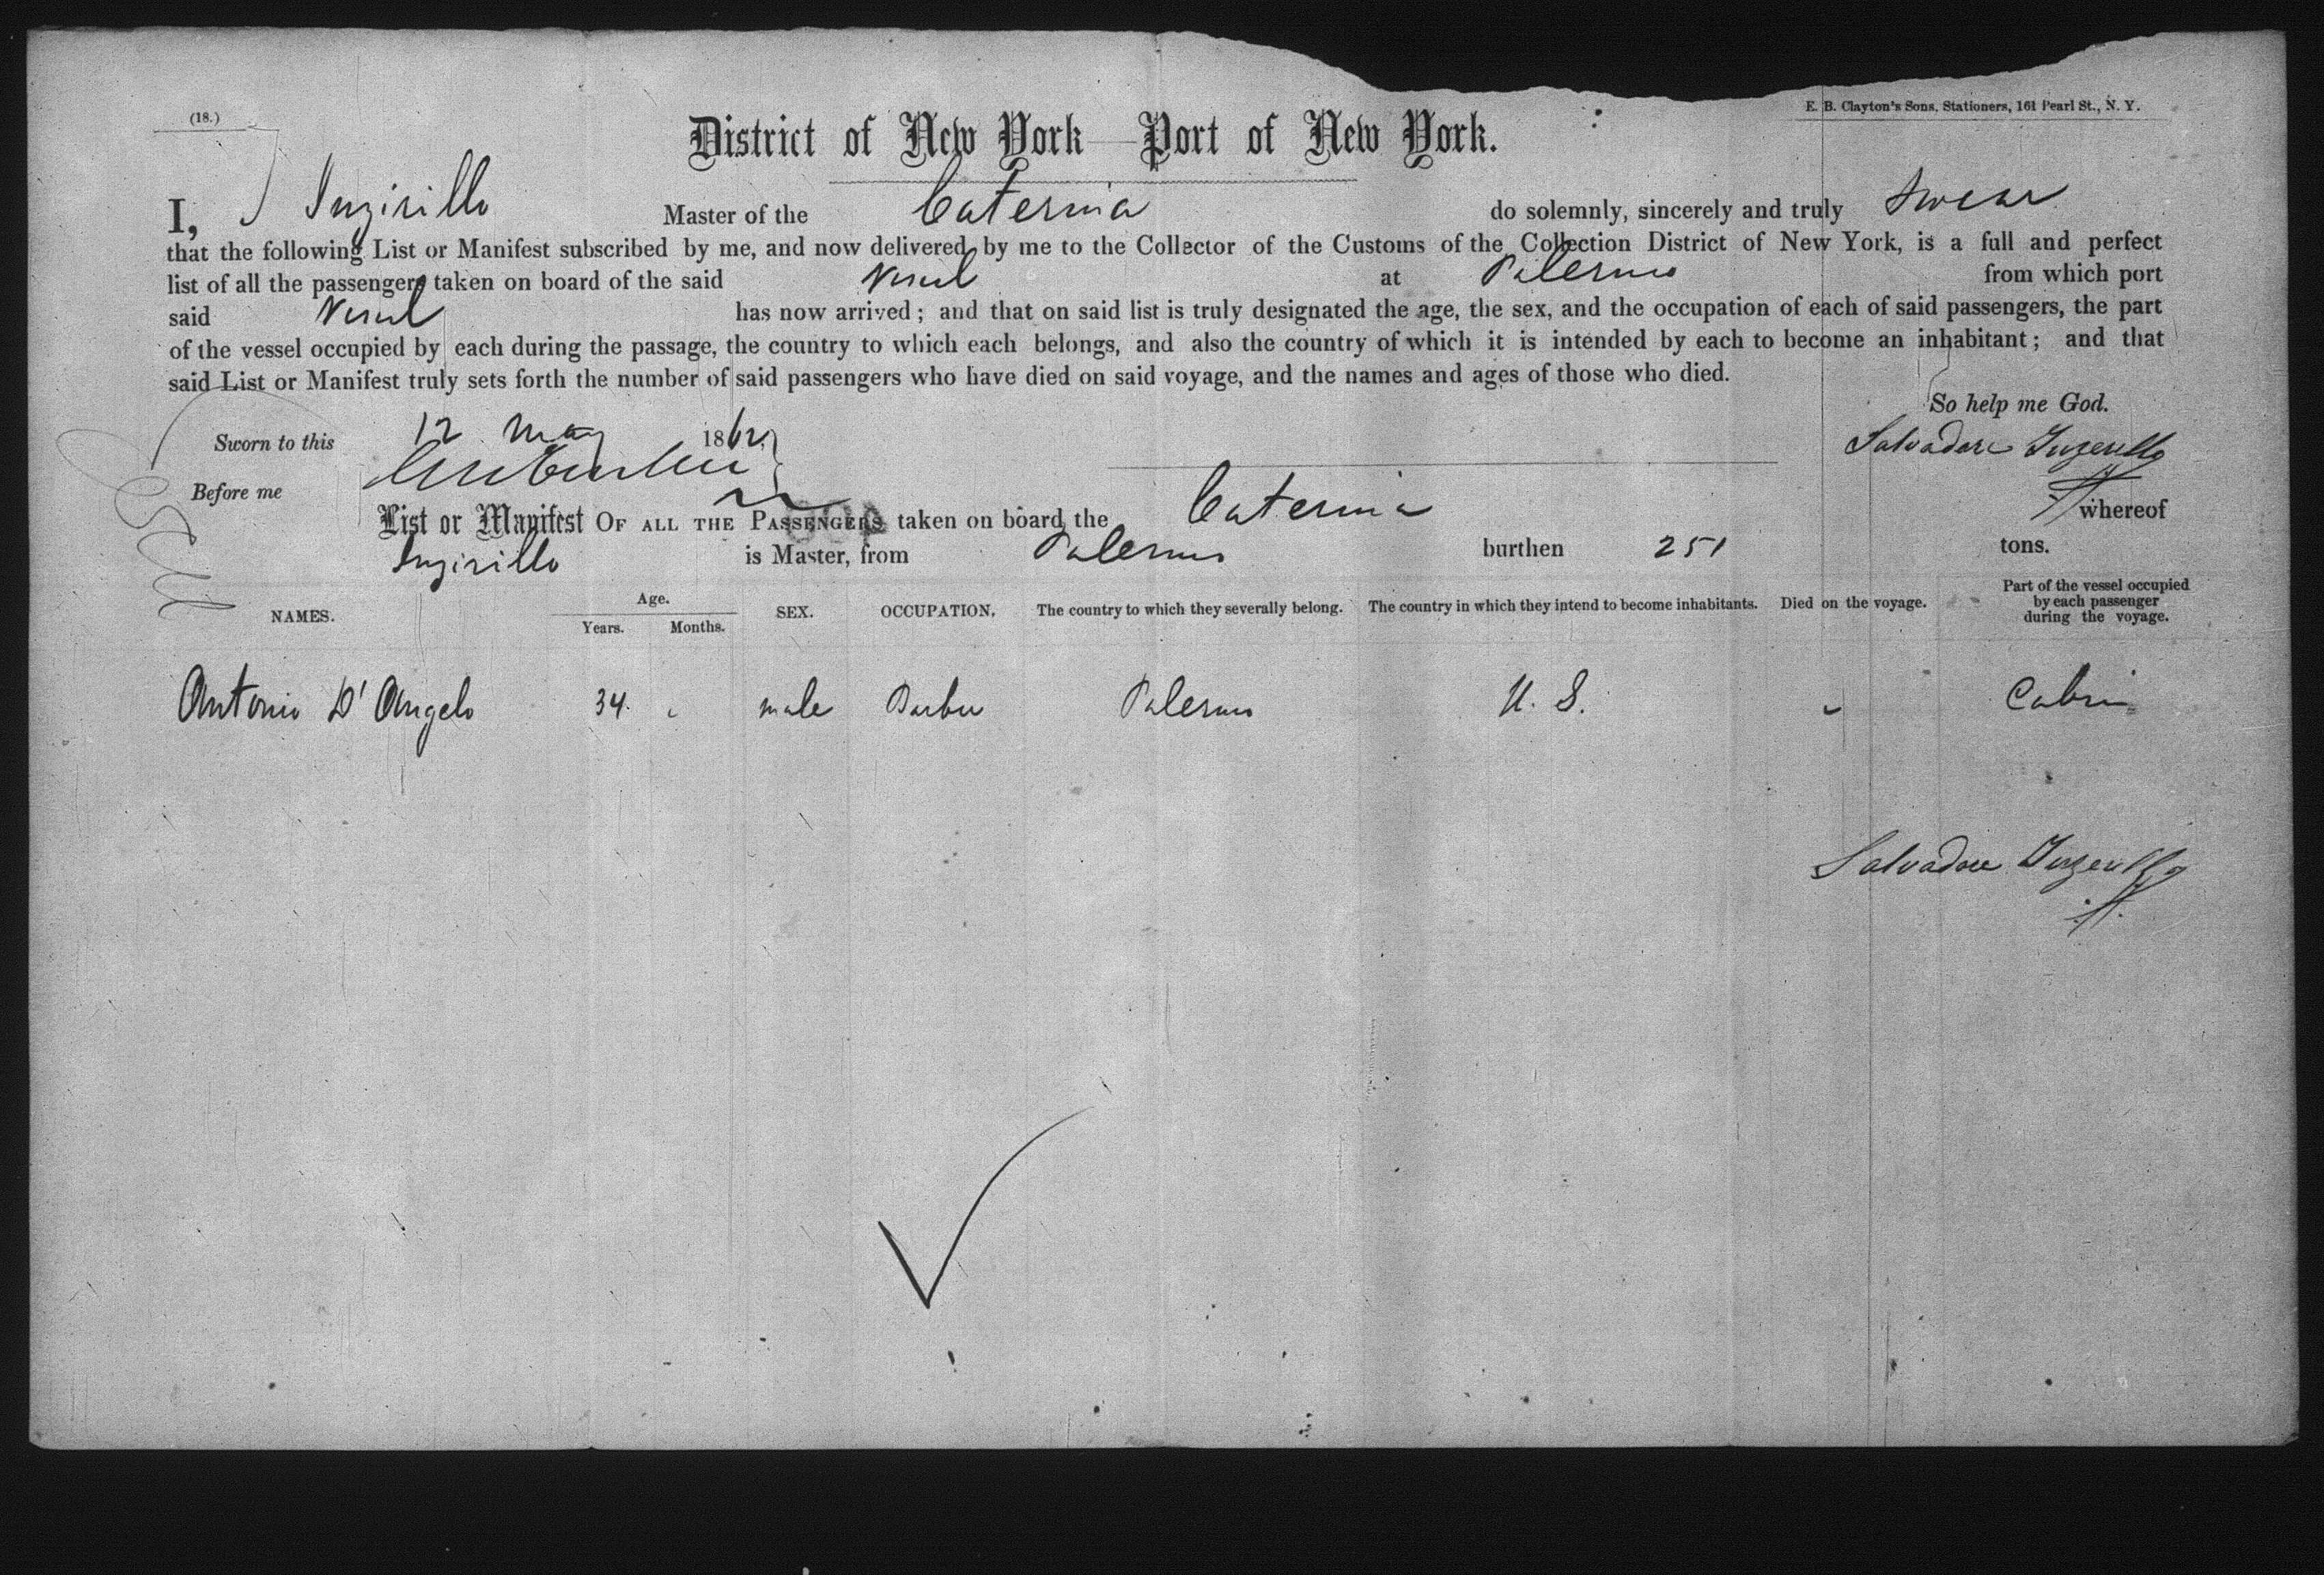 (18.)
E. B. Clayton's Sons, Stationers, 161 Pearl St., N. Y.
District of New York—Port of New York.
I, Inzirillo Master of the Caterina do solemnly, sincerely and truly swear
that the following List or Manifest subscribed by me, and now delivered by me to the Collector of the Customs of the Collection District of New York, is a full and perfect
list of all the passengers taken on board of the said Vessel at Palermo from which port
said Vessel has now arrived; and that on said list is truly designated the age, the sex, and the occupation of each of said passengers, the part
of the vessel occupied by each during the passage, the country to which each belongs, and also the country of which it is intended by each to become an inhabitant; and that
said List or Manifest truly sets forth the number of said passengers who have died on said voyage, and the names and ages of those who died.
So help me God.
Sworn to this 12 May 1862
Salvadore Inzerillo
Before me
List or Manifest OF ALL THE PASSENGERS taken on board the Caterina whereof
Inzirillo is Master, from Palermo burthen 251 tons.
NAMES. Age. Years. Months. SEX. OCCUPATION. The country to which they severally belong. The country in which they intend to become inhabitants. Died on the voyage. Part of the vessel occupied by each passenger during the voyage.
Antonio D'Angelo 34 " male Barber Palermo U. S. " Cabin
Salvadore Inzerillo